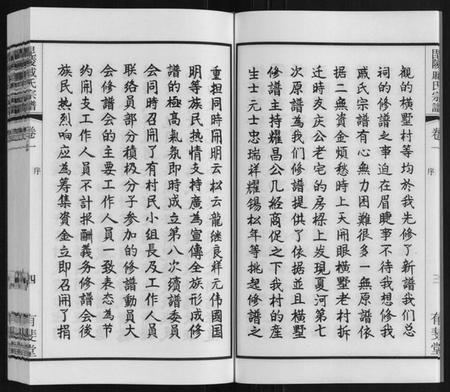 毘陵戚氏宗譜
卷一
序
三
有斐堂
觀的橫墅村等均於我先修了新譜我们总
祠的修譜之事迫在眉睫事不待我想修我
戚氏宗譜有心無力困難很多一無原譜依
据二無資金煩愁時上天開眼橫墅老村拆
迁時友庆公老宅的房樑上发現夏河第七
次原譜為我们修譜提供了依据並且橫墅
修譜主持耀昌公几經商促之下我村的産
生士元士忠瑞祥耀锡松年等挑起修譜之
重担同時開明云松云龍继良祥元偉國国
明等族民热情支持廣為宣傳全族形成修
譜的極高氣氛即時成立第八次續譜委員
会同時召開了有村民小組長及工作人員
联络員部分積极分子参加的修譜動員大
会修譜会的主要工作人員一致表态為节
约開支工作人員不計报酬義务修譜会後
族民热烈响应為筹集資金立即召開了捐
毘陵戚氏宗譜
卷一
序
四
有斐堂